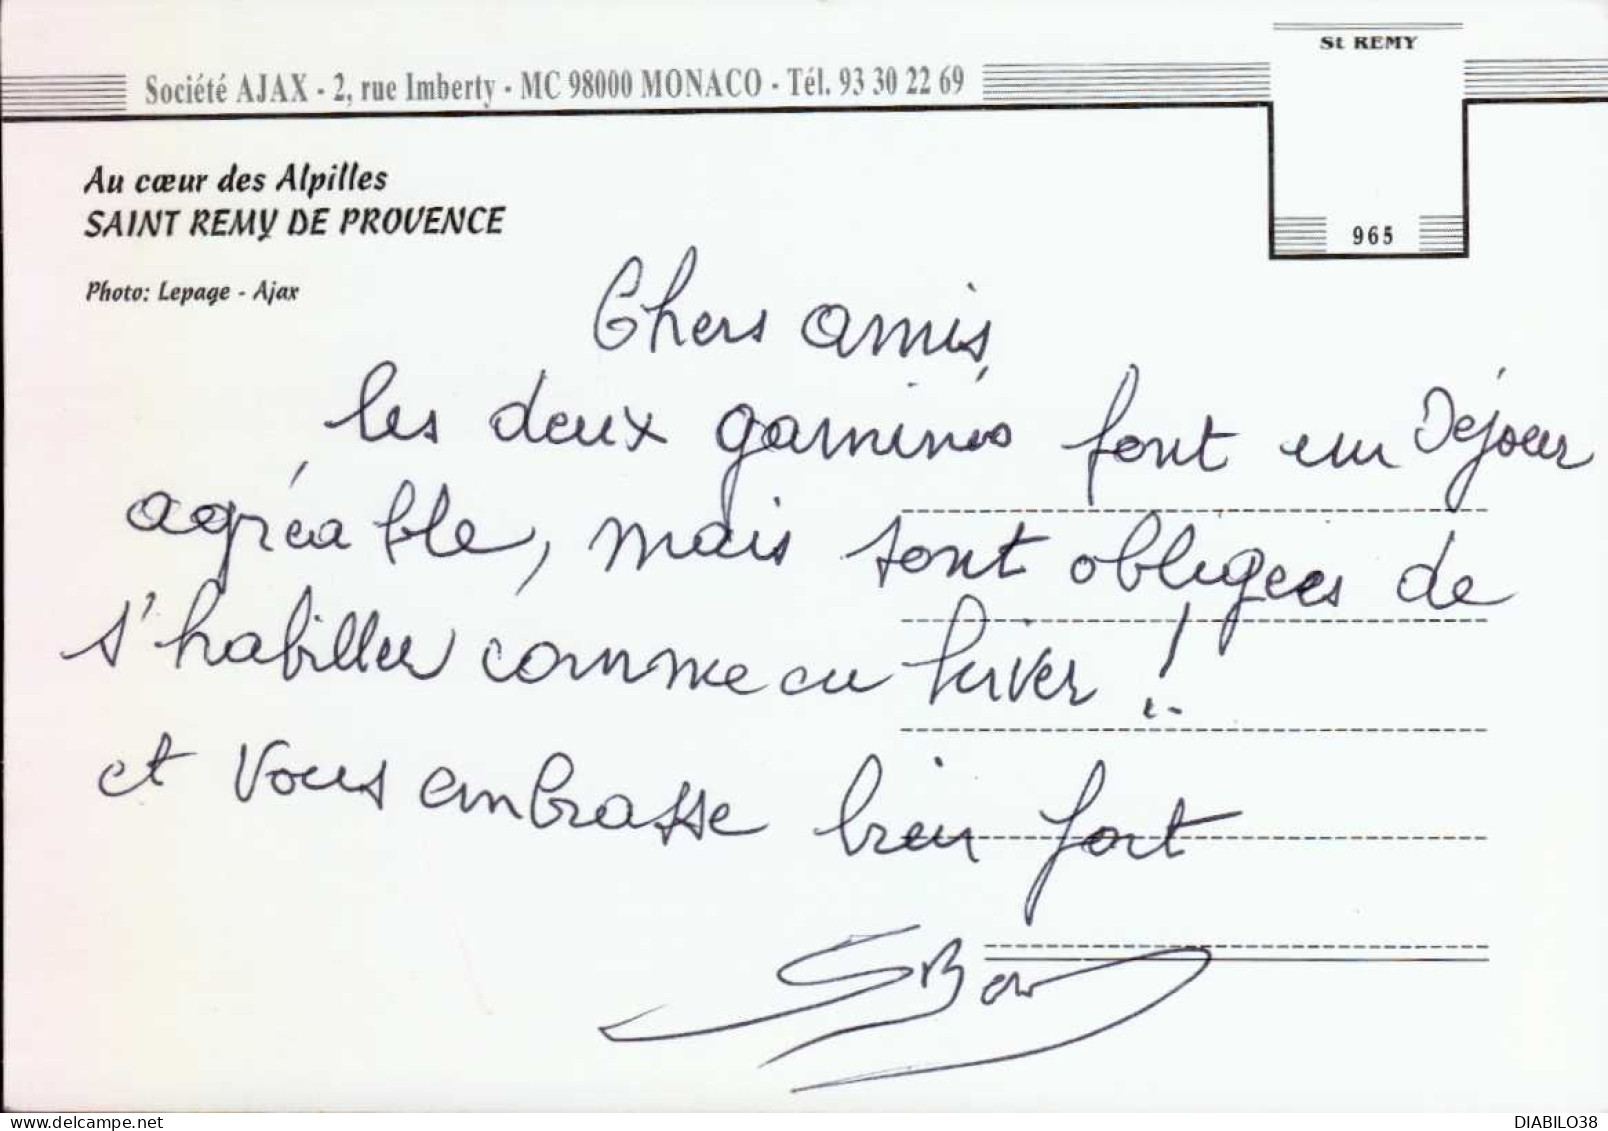 St REMY
Société AJAX - 2, rue Imberty - MC 98000 MONACO - Tél. 93 30 22 69
Au cœur des Alpilles
SAINT REMY DE PROVENCE
965
Photo: Lepage - Ajax
Chers amis,
les deux gamines font un Séjour
agréable, mais sont obligées de
s'habiller comme en hiver !
et vous embrasse bien fort
DIABILO38